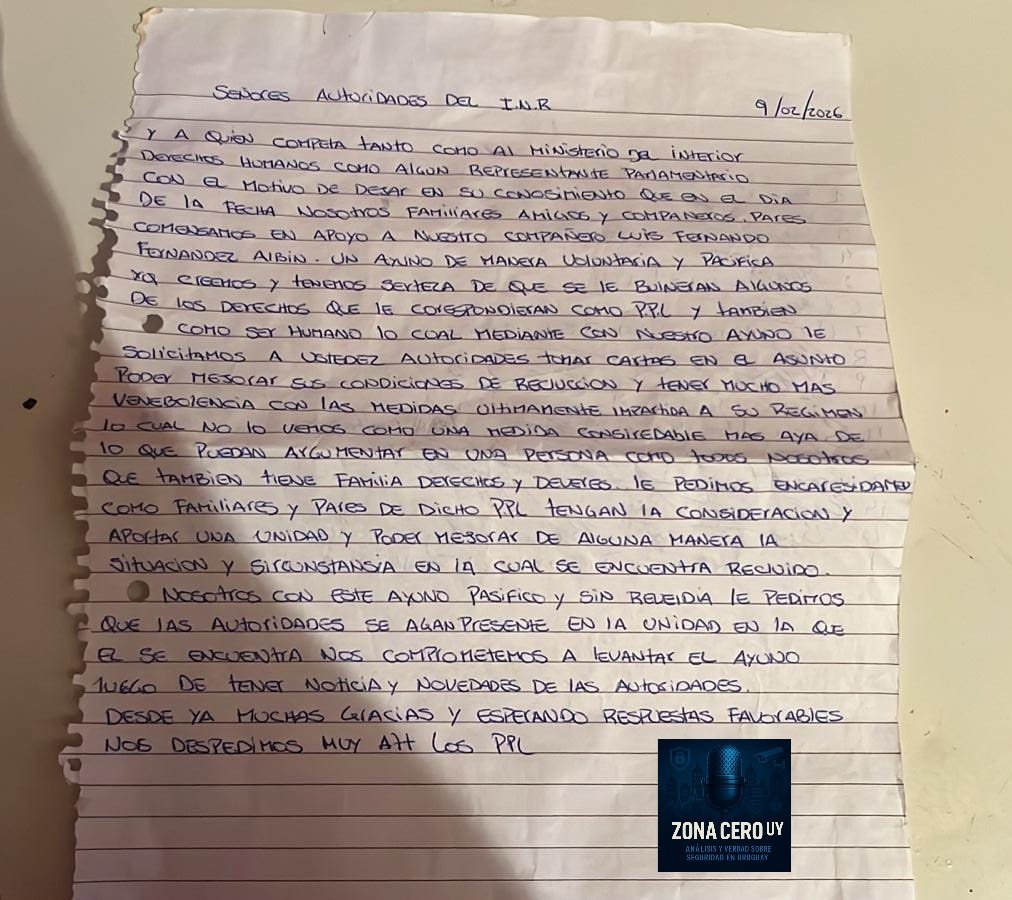 SEÑORES AUTORIDADES DEL I.N.R
9/02/2026
Y A QUIEN COMPETA TANTO COMO AL MINISTERIO DEL INTERIOR
DERECHOS HUMANOS COMO ALGUN REPRESENTANTE PARLAMENTARIO
CON EL MOTIVO DE DEJAR EN SU CONOSIMIENTO QUE EN EL DIA
DE LA FECHA NOSOTROS FAMILIARES AMIGOS Y COMPAÑEROS. PARES
COMENSAMOS EN APOYO A NUESTRO COMPAÑERO LUIS FERNANDO
FERNANDEZ ALBIN. UN AYUNO DE MANERA VOLUNTARIA Y PACIFICA
YA CREEMOS Y TENEMOS SERTEZA DE QUE SE LE BULNERAN ALGUNOS
DE LOS DERECHOS QUE LE CORESPONDIERAN COMO PPL Y TAMBIEN
COMO SER HUMANO LO CUAL MEDIANTE CON NUESTRO AYUNO LE
SOLICITAMOS A USTEDEZ AUTORIDADES TOMAR CARTAS EN EL ASUNTO
PODER MEJORAR SUS CONDICIONES DE RECLUCCION Y TENER MUCHO MAS
VENEBOLENCIA CON LAS MEDIDAS ULTIMAMENTE IMPARTIDA A SU REGIMEN
LO CUAL NO LO VEMOS COMO UNA MEDIDA CONSIREDABLE MAS AYA DE
LO QUE PUEDAN ARGUMENTAR EN UNA PERSONA COMO TODOS NOSOTROS
QUE TAMBIEN TIENE FAMILIA DERECHOS Y DEVERES. LE PEDIMOS
COMO FAMILIARES Y PARES DE DICHO PPL TENGAN LA CONSIDERACION Y
APORTAR UNA UNIDAD Y PODER MEJORAR DE ALGUNA MANERA LA
SITUACION Y SIRCUNSTANSIA EN LA CUAL SE ENCUENTRA RECLUIDO.
NOSOTROS CON ESTE AYUNO PASIFICO Y SIN REVELDIA LE PEDIMOS
QUE LAS AUTORIDADES SE AGAN PRESENTE EN LA UNIDAD EN LA QUE
EL SE ENCUENTRA NOS COMPROMETEMOS A LEVANTAR EL AYUNO
LUEGO DE TENER NOTICIA Y NOVEDADES DE LAS AUTORIDADES.
DESDE YA MUCHAS GRACIAS Y ESPERANDO RESPUESTAS FAVORABLES
NOS DESPEDIMOS MUY ATT LOS PPL
ZONA CERO UY
ANÁLISIS Y VERDAD SOBRE
SEGURIDAD EN URUGUAY